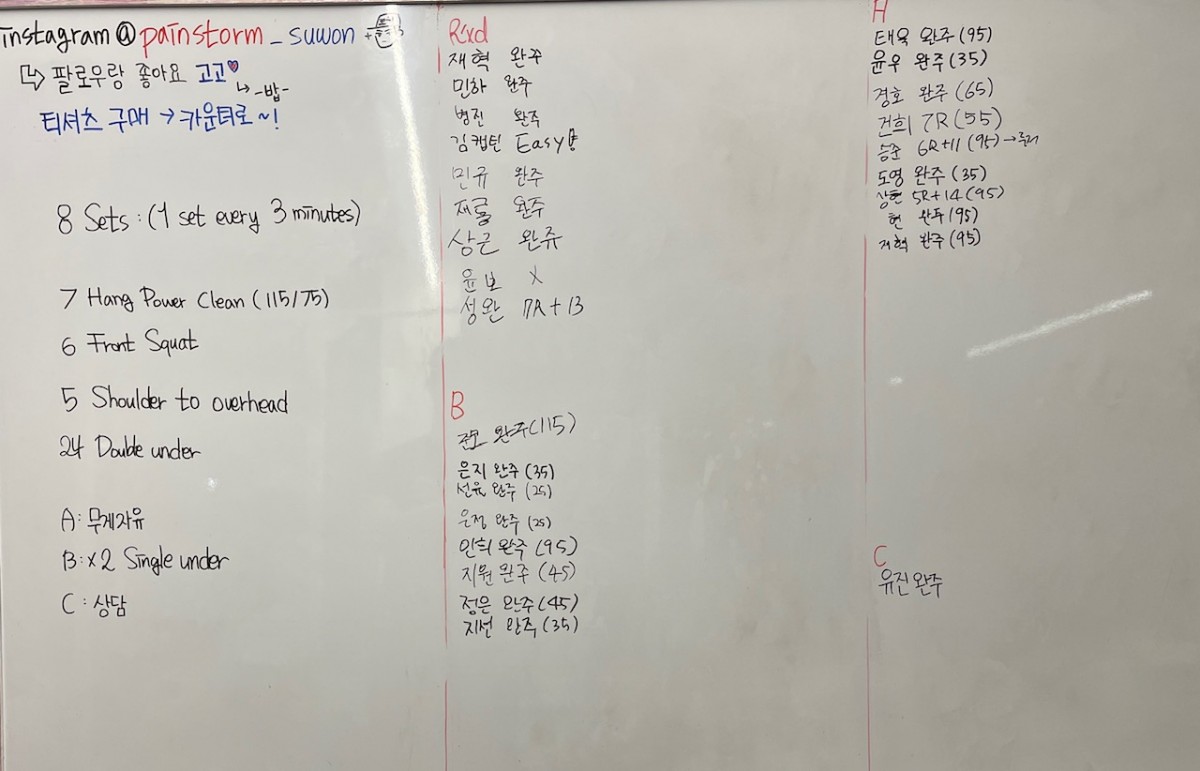 instagram@painstorm_suwon
팔로우랑 좋아요 고고♥
↳ -밥-
티셔츠 구매 → 카운터로~!
8 Sets : (1 set every 3 minutes)
7 Hang Power Clean (115/75)
6 Front Squat
5 Shoulder to overhead
24 Double under
A: 무게자유
B: x2 Single under
C: 상담
Rxd
재혁 완주
민하 완주
병진 완주
김캡틴 Easy
민규 완주
완주
상근 완쥬
윤보 X
성완 7R+13
B
완주(115)
은지 완주 (35)
선유 완주 (25)
은정 완주 (25)
인희 완주 (95)
지원 완주 (45)
정은 완주(45)
지선 완주 (35)
H
태욱 완주(95)
윤우 완주(35)
경호 완주 (65)
건희 7R(55)
승준 6R+11 (95)→
도영 완주 (35)
상현 5R+14(95)
현 완주(95)
재혁 완주 (95)
C
유진 완주